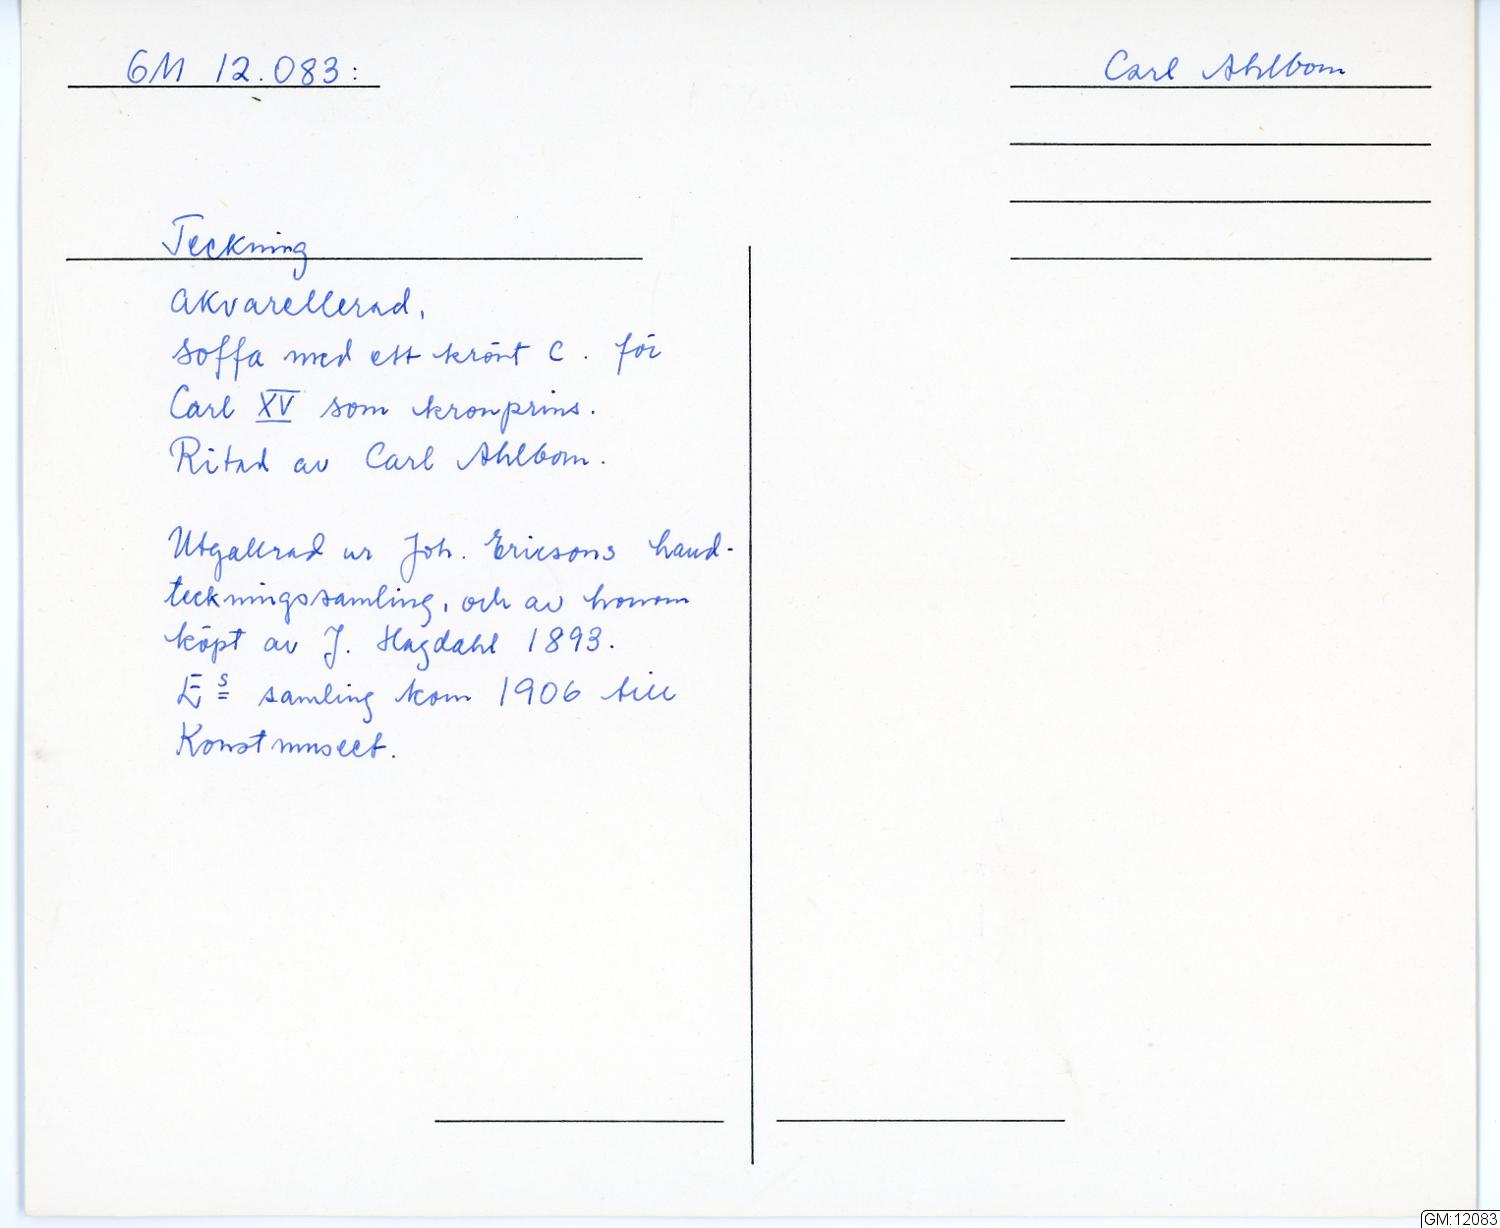 GM 12.083:
Carl Ahlbom
Teckning
akvarellerad,
soffa med ett krönt C. för
Carl XV som kronprins.
Ritad av Carl Ahlbom.
Utgallrad ur Joh. Ericsons hand-
teckningssamling, och av honom
köpt av J. Hagdahl 1893.
E s samling kom 1906 till
Konstmuseet.
GM:12083